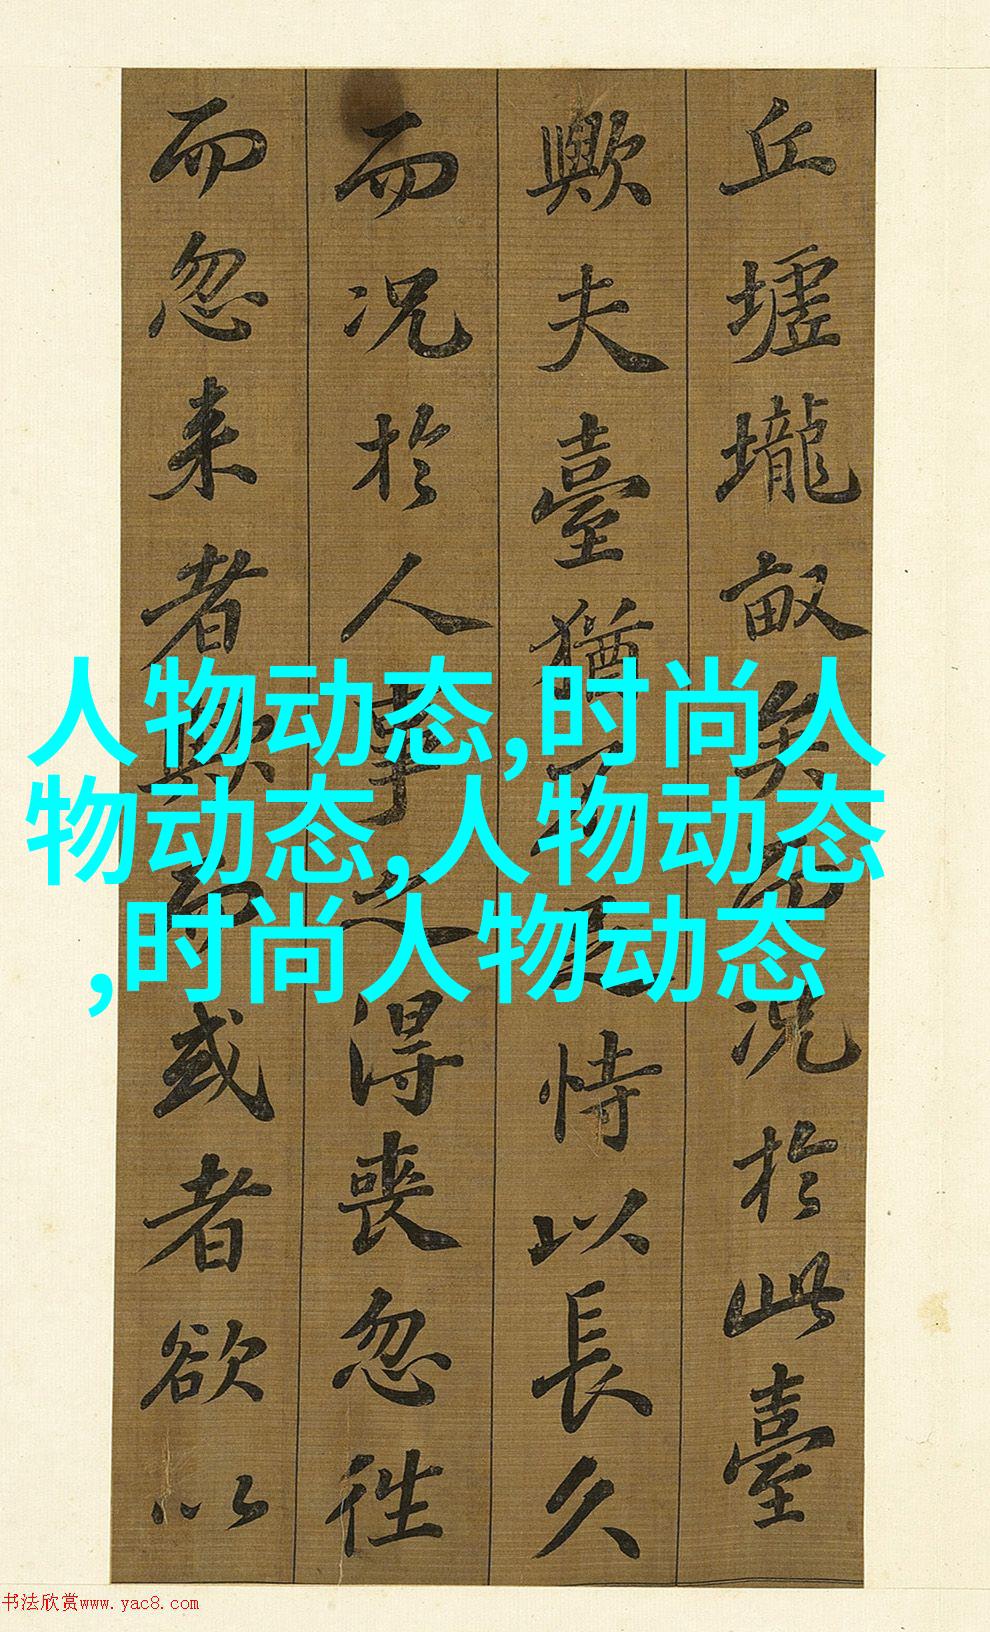 丘墟壠畝矣而况於此臺
歟夫臺猶不足恃以長久
而况於人事之得喪忽往
而忽来者歟而或者欲以
人物动态,时尚人
物动态,人物动态
,时尚人物动态
书法欣赏www.yac8.com